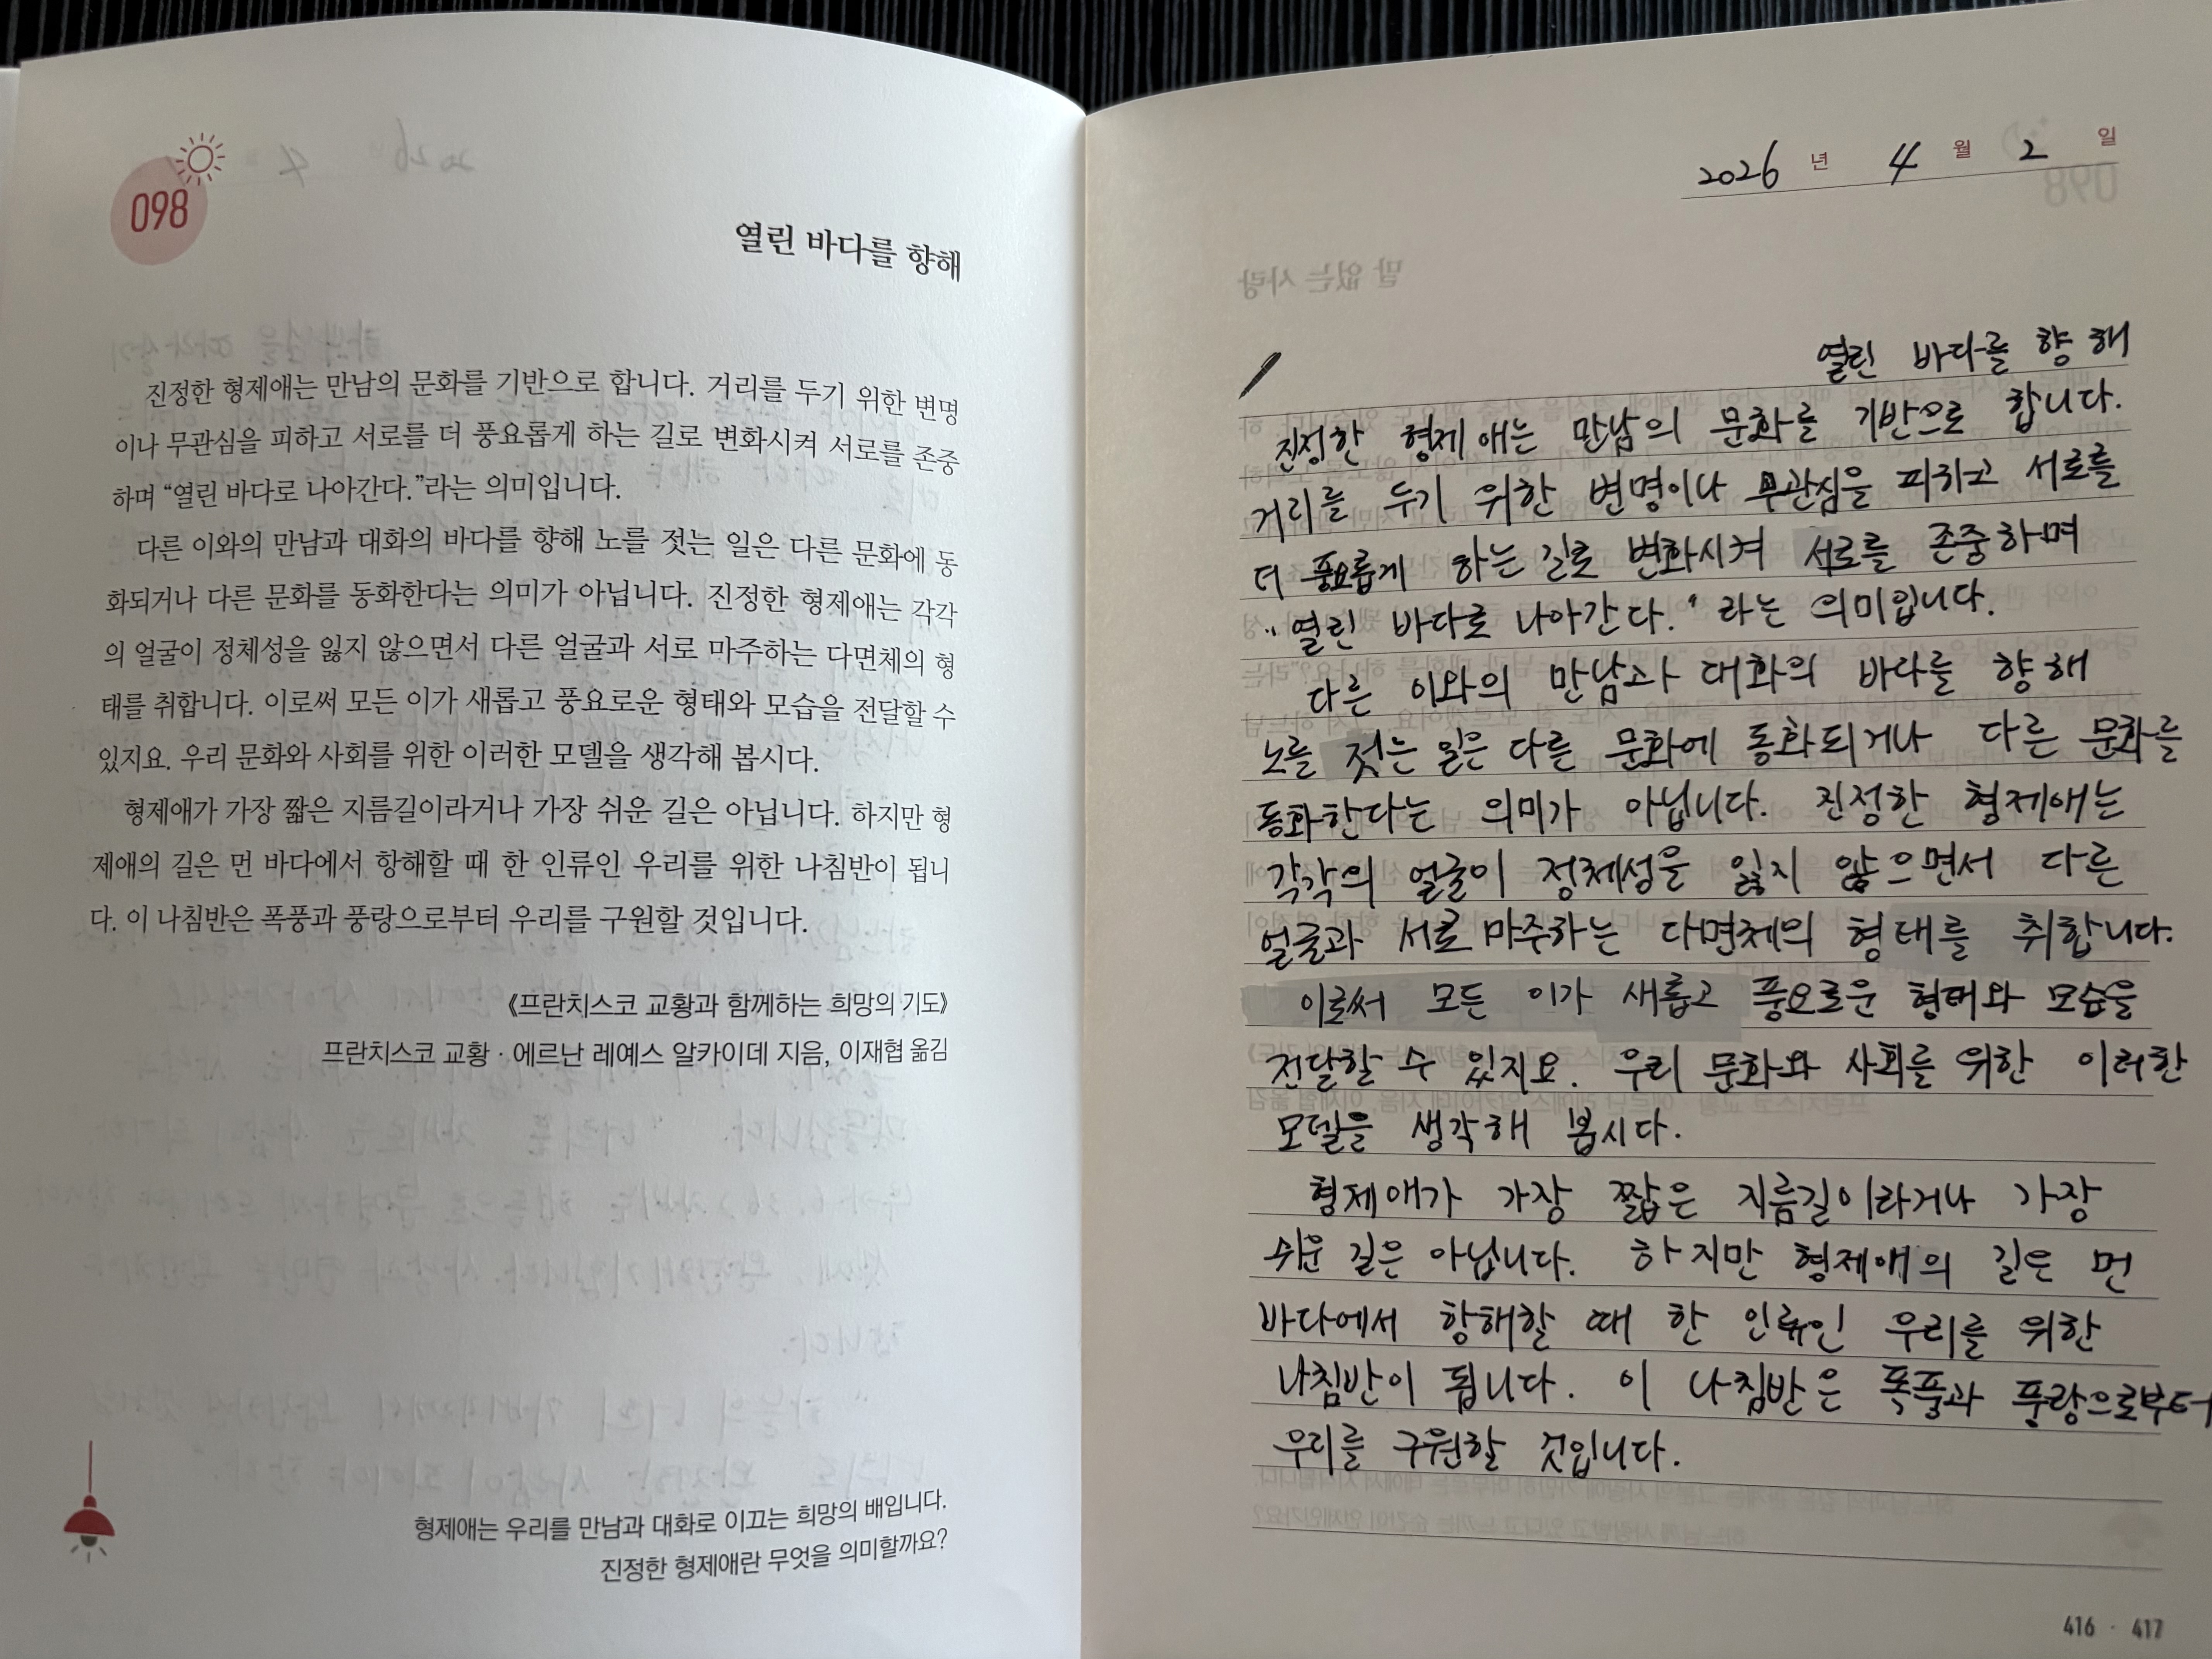 098
열린 바다를 향해
진정한 형제애는 만남의 문화를 기반으로 합니다. 거리를 두기 위한 변명
이나 무관심을 피하고 서로를 더 풍요롭게 하는 길로 변화시켜 서로를 존중
하며 “열린 바다로 나아간다.”라는 의미입니다.
다른 이와의 만남과 대화의 바다를 향해 노를 젓는 일은 다른 문화에 동
화되거나 다른 문화를 동화한다는 의미가 아닙니다. 진정한 형제애는 각각
의 얼굴이 정체성을 잃지 않으면서 다른 얼굴과 서로 마주하는 다면체의 형
태를 취합니다. 이로써 모든 이가 새롭고 풍요로운 형태와 모습을 전달할 수
있지요. 우리 문화와 사회를 위한 이러한 모델을 생각해 봅시다.
형제애가 가장 짧은 지름길이라거나 가장 쉬운 길은 아닙니다. 하지만 형
제애의 길은 먼 바다에서 항해할 때 한 인류인 우리를 위한 나침반이 됩니
다. 이 나침반은 폭풍과 풍랑으로부터 우리를 구원할 것입니다.
《프란치스코 교황과 함께하는 희망의 기도》
프란치스코 교황 · 에르난 레예스 알카이데 지음, 이재협 옮김
형제애는 우리를 만남과 대화로 이끄는 희망의 배입니다.
진정한 형제애란 무엇을 의미할까요?
2026 년 4 월 2 일
열린 바다를 향해
진정한 형제애는 만남의 문화를 기반으로 합니다.
거리를 두기 위한 변명이나 무관심을 피하고 서로를
더 풍요롭게 하는 길로 변화시켜 서로를 존중하며
“열린 바다로 나아간다.” 라는 의미입니다.
다른 이와의 만남과 대화의 바다를 향해
노를 젓는 일은 다른 문화에 동화되거나 다른 문화를
동화한다는 의미가 아닙니다. 진정한 형제애는
각각의 얼굴이 정체성을 잃지 않으면서 다른
얼굴과 서로 마주하는 다면체의 형태를 취합니다.
이로써 모든 이가 새롭고 풍요로운 형태와 모습을
전달할 수 있지요. 우리 문화와 사회를 위한 이러한
모델을 생각해 봅시다.
형제애가 가장 짧은 지름길이라거나 가장
쉬운 길은 아닙니다. 하지만 형제애의 길은 먼
바다에서 항해할 때 한 인류인 우리를 위한
나침반이 됩니다. 이 나침반은 폭풍과 풍랑으로부터
우리를 구원할 것입니다.
416 · 417